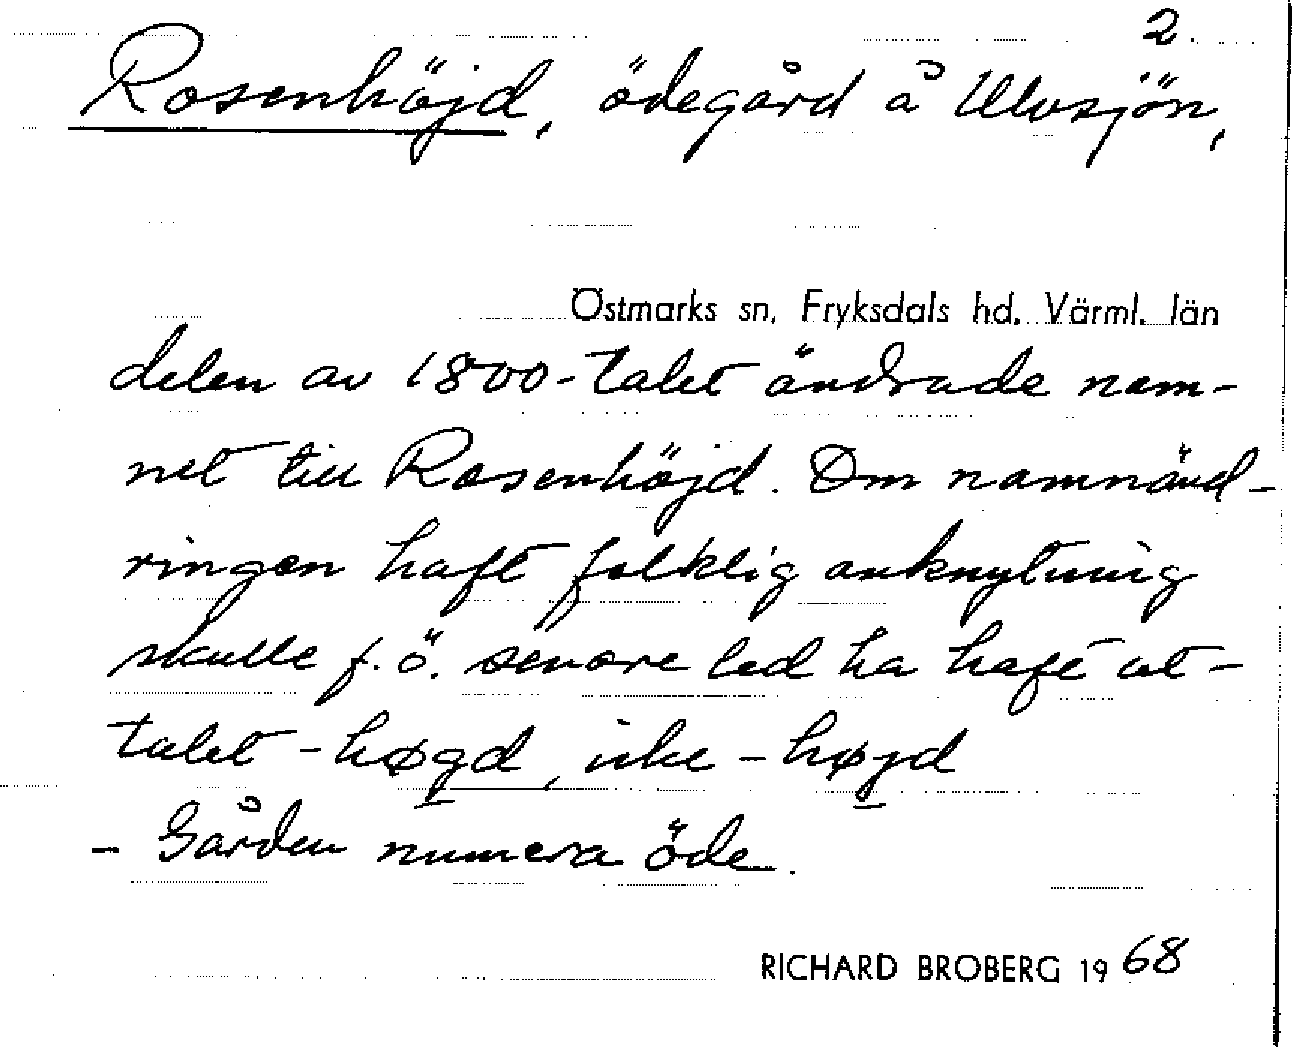 2.
Rosenhöjd, ödegård å Ulvsjön,
Östmarks sn, Fryksdals hd. Värml. län
delen av 1800-talet ändrade nam-
net till Rosenhöjd. Om namnänd-
ringen haft folklig anknytning
skulle f. ö. senare led ha haft ut-
talet -høgd, icke -højd
- Gården numera öde.
RICHARD BROBERG 1968